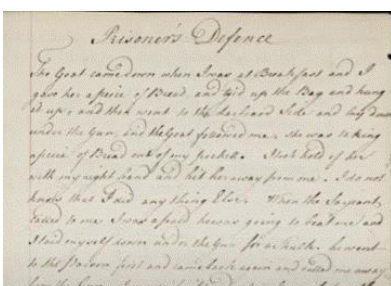 Prisoner's Defence
The Goat came down when I was at Breakfast and I
gave her a peice of Bread and tied up the Bag and hung
it up, and then went to the larboard Side and lay down
under the Gun, and the Goat followed me, she was taking
a peice of Bread out of my pocket. I took hold of her
with my right hand and hit her away from me. I do not
know that I did any thing Else. When the Serjeant
called to me I was afraid he was going to beat me and
I laid myself down under the Gun for a while. he went
to the first and came back again and called me away